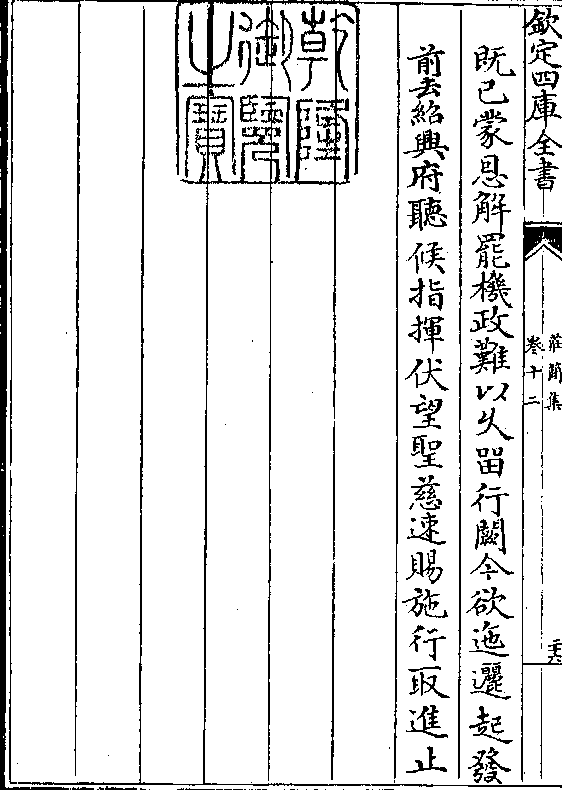 欽定四庫全書
莊簡集
卷十二
二六
既已蒙恩解罷機政難以久留行闕今欲迤邐起發
前去紹興府聽候指揮伏望聖慈速賜施行取進止
乾隆
御覽
之寶